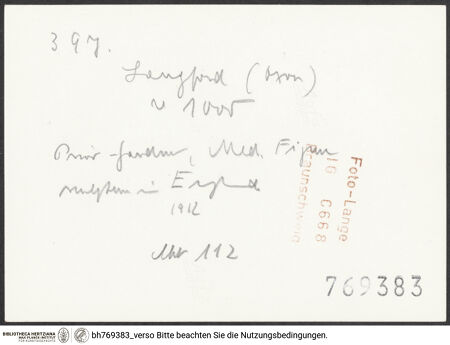 397.
Langford (Oxon)
~ 1005
Prior-Gardner, Med. Figure
sculpture in England
1912
Abb 112
Foto-Lange
IG C668
Braunschweig
769383
BIBLIOTHECA HERTZIANA
MAX-PLANCK-INSTITUT
FÜR KUNSTGESCHICHTE
bh769383_verso Bitte beachten Sie die Nutzungsbedingungen.